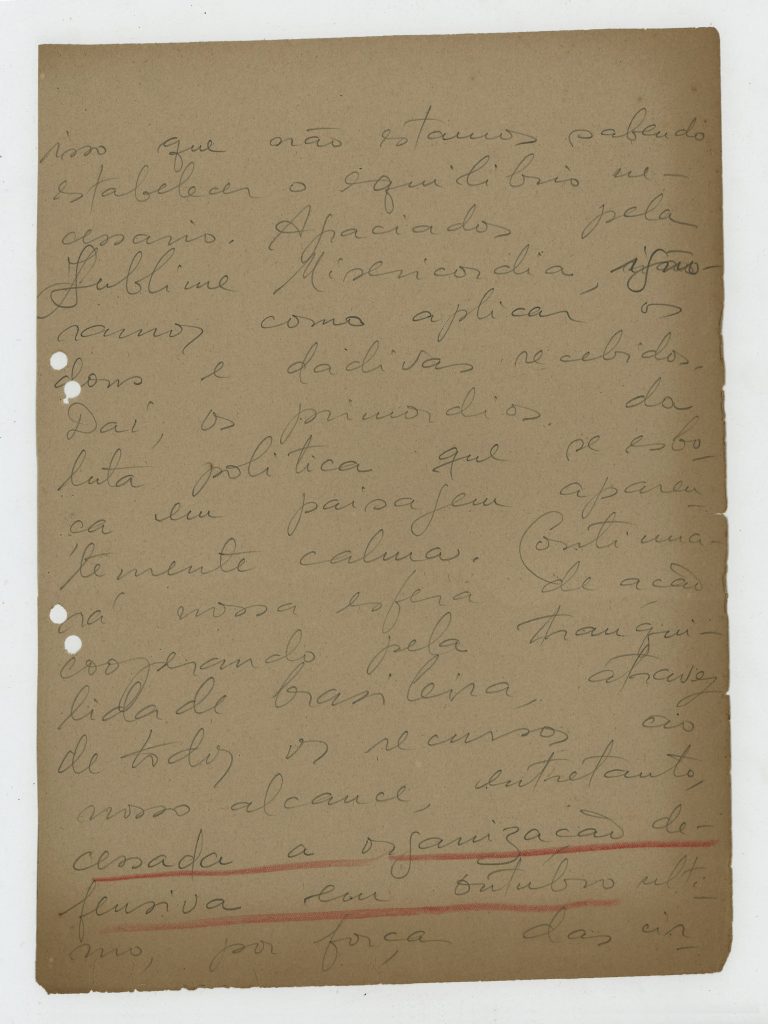 isso que não estamos sabendo
estabelecer o equilibrio ne-
cessario. Apaciados pela
Sublime Misericordia, igno-
ramos como aplicar os
dons e dadivas recebidos.
Daí, os primordios da
luta politica que se esbo-
ça em paisagem aparen-
temente calma. Continua-
rá nossa esfera de ação
cooperando pela tranqui-
lidade brasileira, atravez
de todos os recursos ao
nosso alcance, entretanto,
cessada a organização de-
fensiva em outubro ulti-
mo, por força das cir-